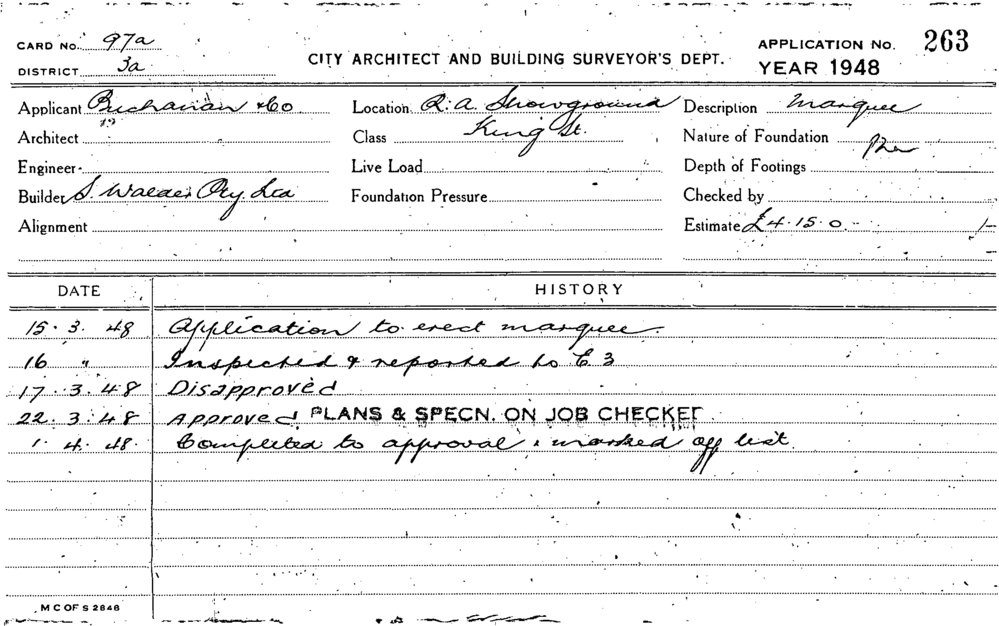 CARD NO. 97a
DISTRICT 3a
CITY ARCHITECT AND BUILDING SURVEYOR'S DEPT.
APPLICATION NO. 263
YEAR 1948
Applicant Buchanan & Co Location R.A. Showground Description Marquee
Architect Class King St. Nature of Foundation
Engineer Live Load Depth of Footings
Builder S. Walder Pty. Ltd Foundation Pressure Checked by
Alignment Estimate £4.15.0 1/-
DATE HISTORY
15.3.48 Application to erect marquee.
16 " Inspected & reported to E3
17.3.48 Disapproved
22.3.48 Approved PLANS & SPECN. ON JOB CHECKED
1.4.48. Completed to approval & marked off list
M C OF S 2848